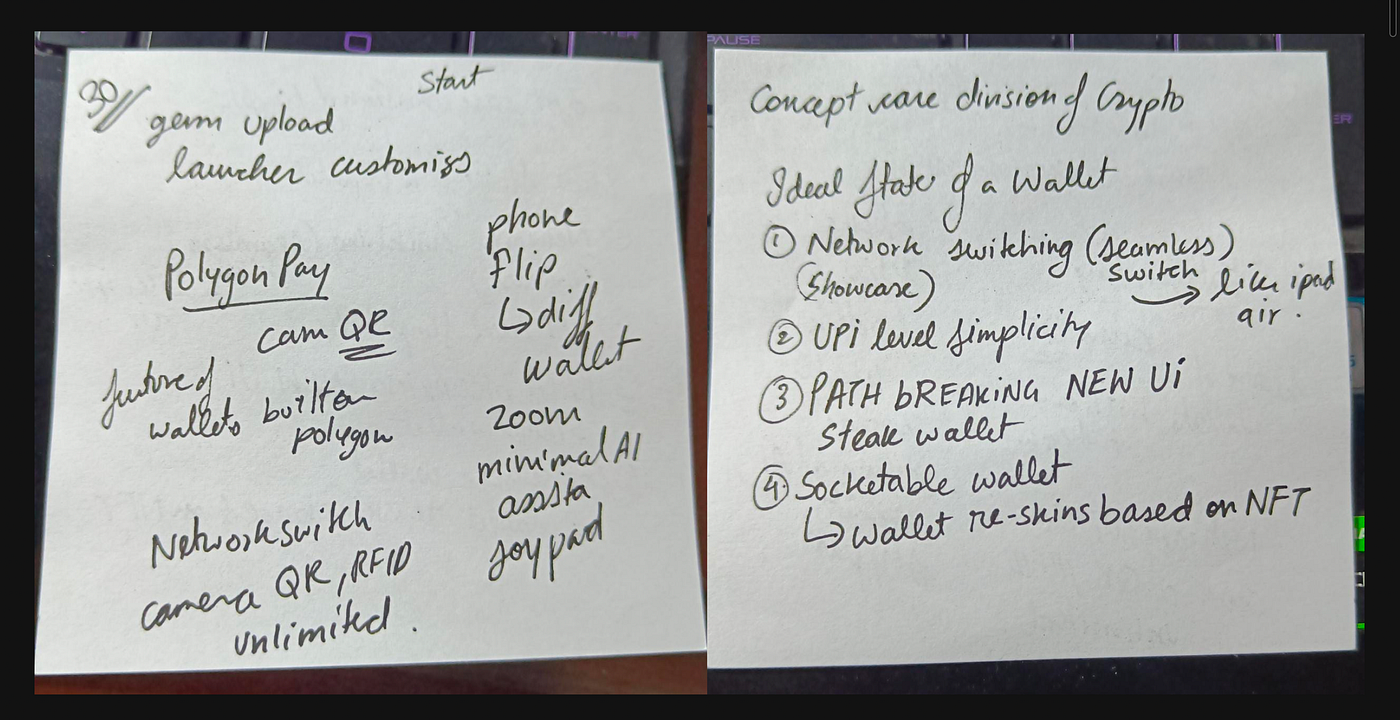 Start
30//
germ upload
launcher customiss
Polygon Pay
cam QR
future of
wallets built on
polygon
Network switch
camera QR, RFID
unlimited.
phone
Flip
↳ diff
wallet
zoom
minimal AI
assista
joypad
PAUSE
Concept care division of Crypto
Ideal State of a Wallet
① Network switching (seamless)
(Showcase) switch → like ipad
air.
② UPi level simplicity
③ PATH bREAKiNG NEW Ui
Steak wallet
④ Socketable wallet
↳ wallet re-skins based on NFT